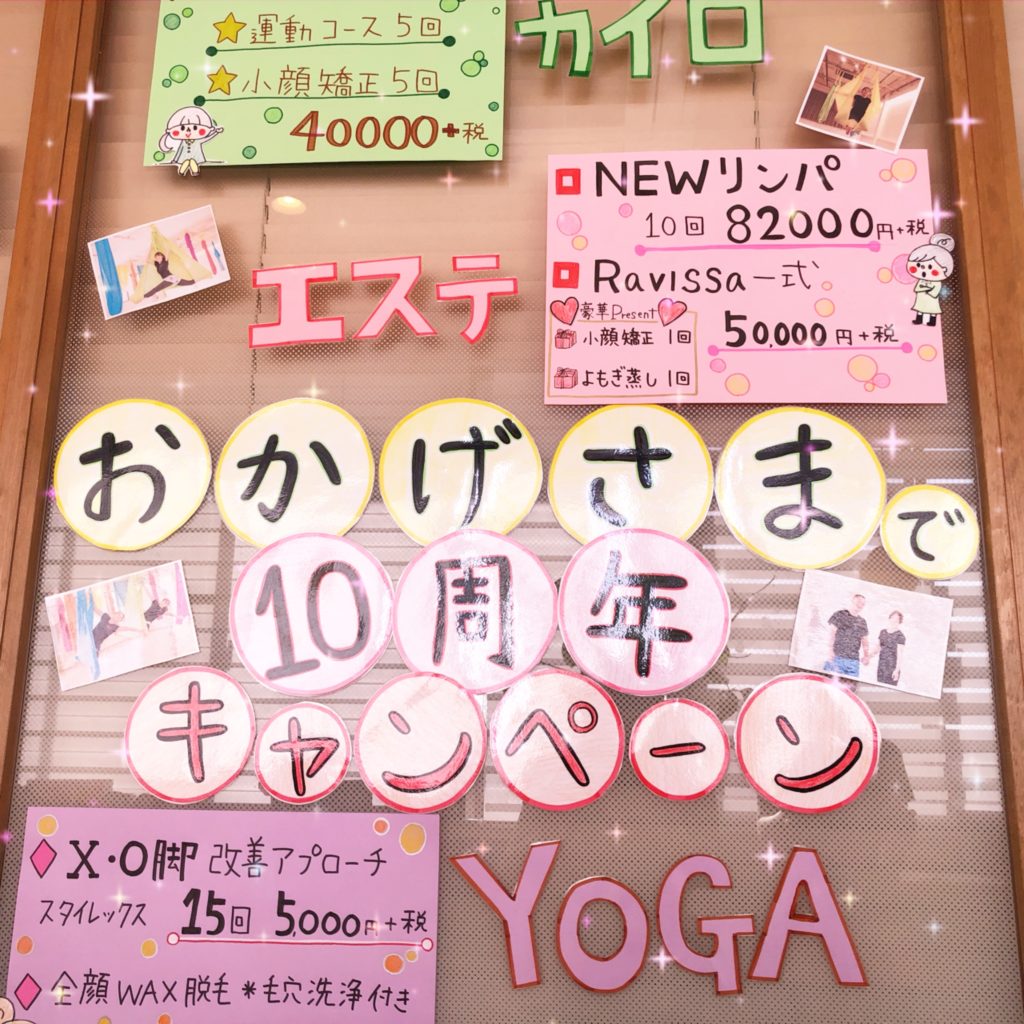 カイロ
運動コース5回
小顔矯正5回
40000+税
エステ
NEWリンパ
10回 82000円+税
Ravissa一式
豪華Present
小顔矯正 1回
よもぎ蒸し 1回
50,000円+税
おかげさまで
10周年
キャンペーン
X・O脚 改善アプローチ
スタイレックス 15回 5,000円+税
全顔WAX脱毛*毛穴洗浄付き
YOGA